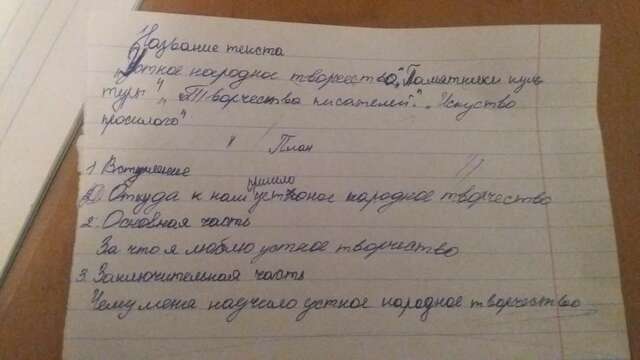 Название текста
"Устное народное творчество", "Памятники куль
туры", "Творчество писателей". "Искуство
прошлого"
План
1. Вступление
Откуда к нам пришло устоное народное творчество
2. Основная часть
За что я люблю устное творчество
3. Заключительная часть
Чему меня научило устное народное творчество